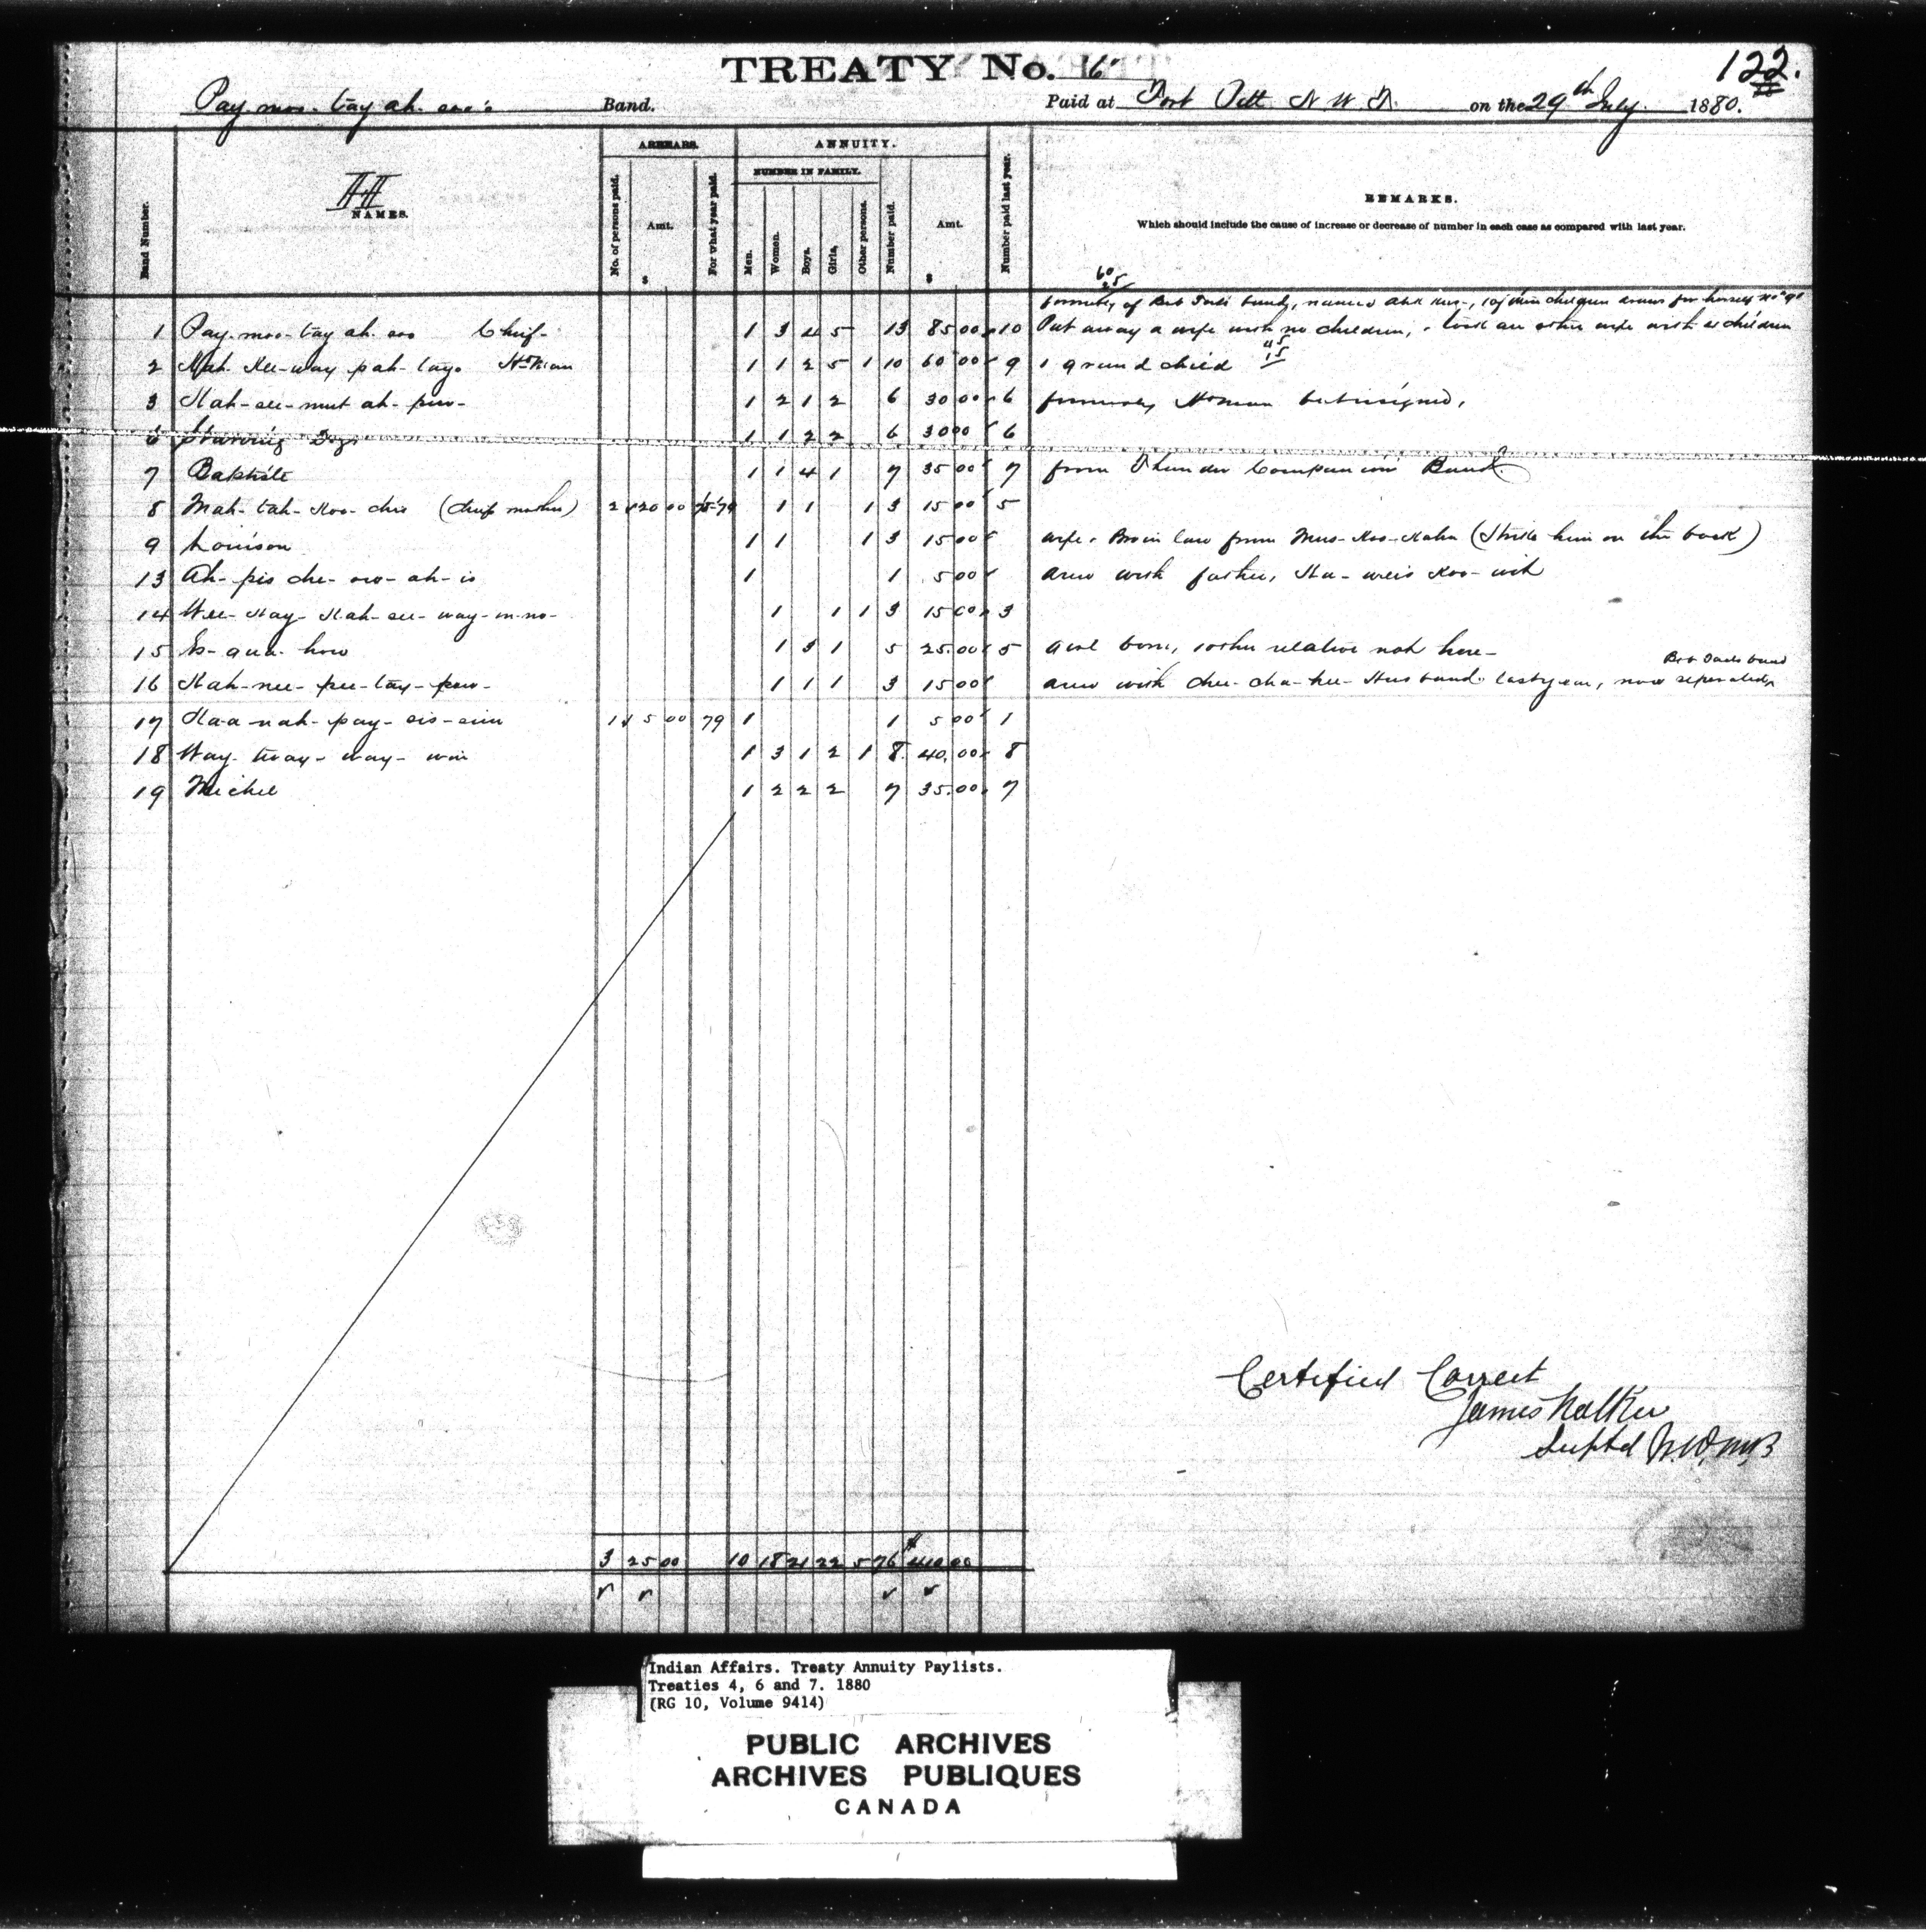 TREATY No. 6
122.
Pay-moo-tay ah-soo's Band.
Paid at Fort Pitt N W T. on the 29th July 1880.
ARREARS. ANNUITY.
NUMBER IN FAMILY.
Band Number. NAMES. No. of persons paid. Amt. $ For what year paid. Men. Women. Boys. Girls. Other persons. Number paid. Amt. $ Number paid last year.
REMARKS.
Which should include the cause of increase or decrease of number in each case as compared with last year.
60
25
formerly of Bob Tails band, named
1 Pay-moo-tay ah-soo Chief 1 3 4 5 13 85 00 10 Put away a wife with no children, took an other wife with children
45
15
2 Nah-Kee-way pah-tayo Hdman 1 1 2 5 1 10 60 00 9 1 grand child
3 Kah-see-mut ah-poo- 1 2 1 2 6 30 00 6 formerly Hdman but resigned,
6 Starving Dogs 1 1 2 2 6 30 00 6
7 Baptiste 1 1 4 1 7 35 00 7 from Thunder Companion Band
8 Mah-tah-Koo-chis (chief mother) 2 20 00 78-79 1 1 1 3 15 00 5
9 Louison 1 1 1 3 15 00 wife & Bro in law from Mus-Koo-Kahn (Strike him on the back)
13 Ah-pis che-ow-ah-is 1 1 5 00 drew with father,
14 Wee-Kay-Kah-see-way-in-no- 1 1 1 3 15 00 3
15 Is-qua-how 1 3 1 5 25.00 5 Girl born, 1 other relative not here-
Bob Tails band
16 Kah-nee-pee-tay-pew- 1 1 1 3 15 00 drew with Chee-cha-kee-Husband last year, now seperated
17 Ka-a-nah-pay-sis-sim 1 5 00 79 1 1 5 00 1
18 Way-tway-way-win 1 3 1 2 1 8 40.00 8
19 Michel 1 2 2 2 7 35.00 7
Certified Correct
James Walker
Suptd N.W.M.P.
3 25 00 10 18 21 22 5 76 $ 410 00
Indian Affairs. Treaty Annuity Paylists.
Treaties 4, 6 and 7. 1880
(RG 10, Volume 9414)
PUBLIC ARCHIVES
ARCHIVES PUBLIQUES
CANADA